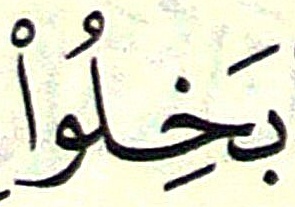 بَخِلُوا۟